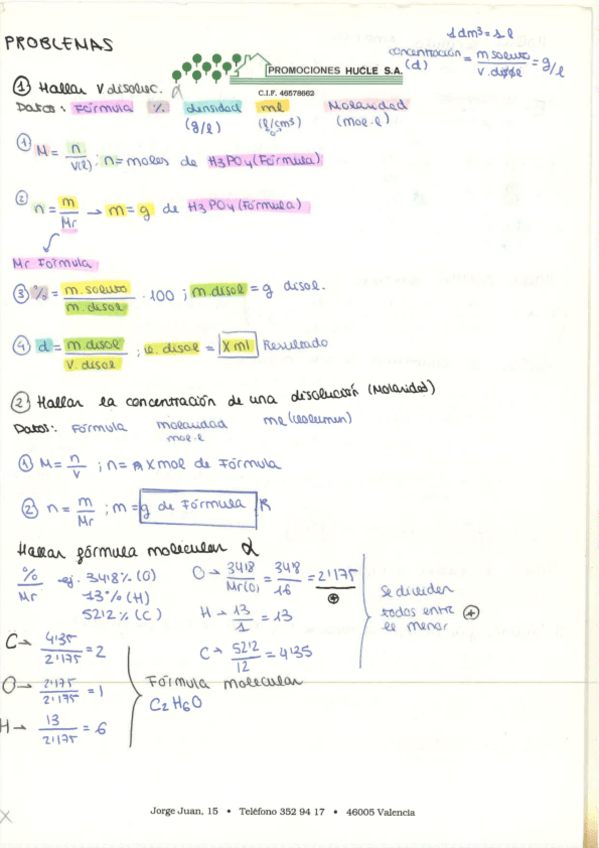 PROBLEMAS
1dm³=1l
concentración (d) = m soluto / v.dsol = g/l
PROMOCIONES HUCLE S.A.
C.I.F. 46578662
① Hallar V disoluc.
Datos: Fórmula % densidad ml Molaridad
(g/l) (l/cm³) (mol·l)
① M = n / V(l) ; n = moles de H3PO4 (Fórmula)
② n = m / Mr → m = g de H3PO4 (Fórmula)
Mr Fórmula
③ % = m. soluto / m. disol · 100 ; m. disol = g disol.
④ d = m. disol / v. disol ; v. disol = X ml Resultado
② Hallar la concentración de una disolución (Molaridad)
Datos: Fórmula molaridad ml (volumen)
mol·l
① M = n / v ; n = X mol de Fórmula
② n = m / Mr ; m = g de Fórmula R
Hallar fórmula molecular
% / Mr ej. 34'8% (O)
13% (H)
52'12% (C)
O → 34'8 / Mr(O) = 34'8 / 16 = 2'175
H → 13 / 1 = 13
C → 52'12 / 12 = 4'35
Se dividen
todos entre
el menor
C → 4'35 / 2'175 = 2
O → 2'175 / 2'175 = 1
H → 13 / 2'175 = 6
Fórmula molecular
C2H6O
Jorge Juan, 15 • Teléfono 352 94 17 • 46005 Valencia